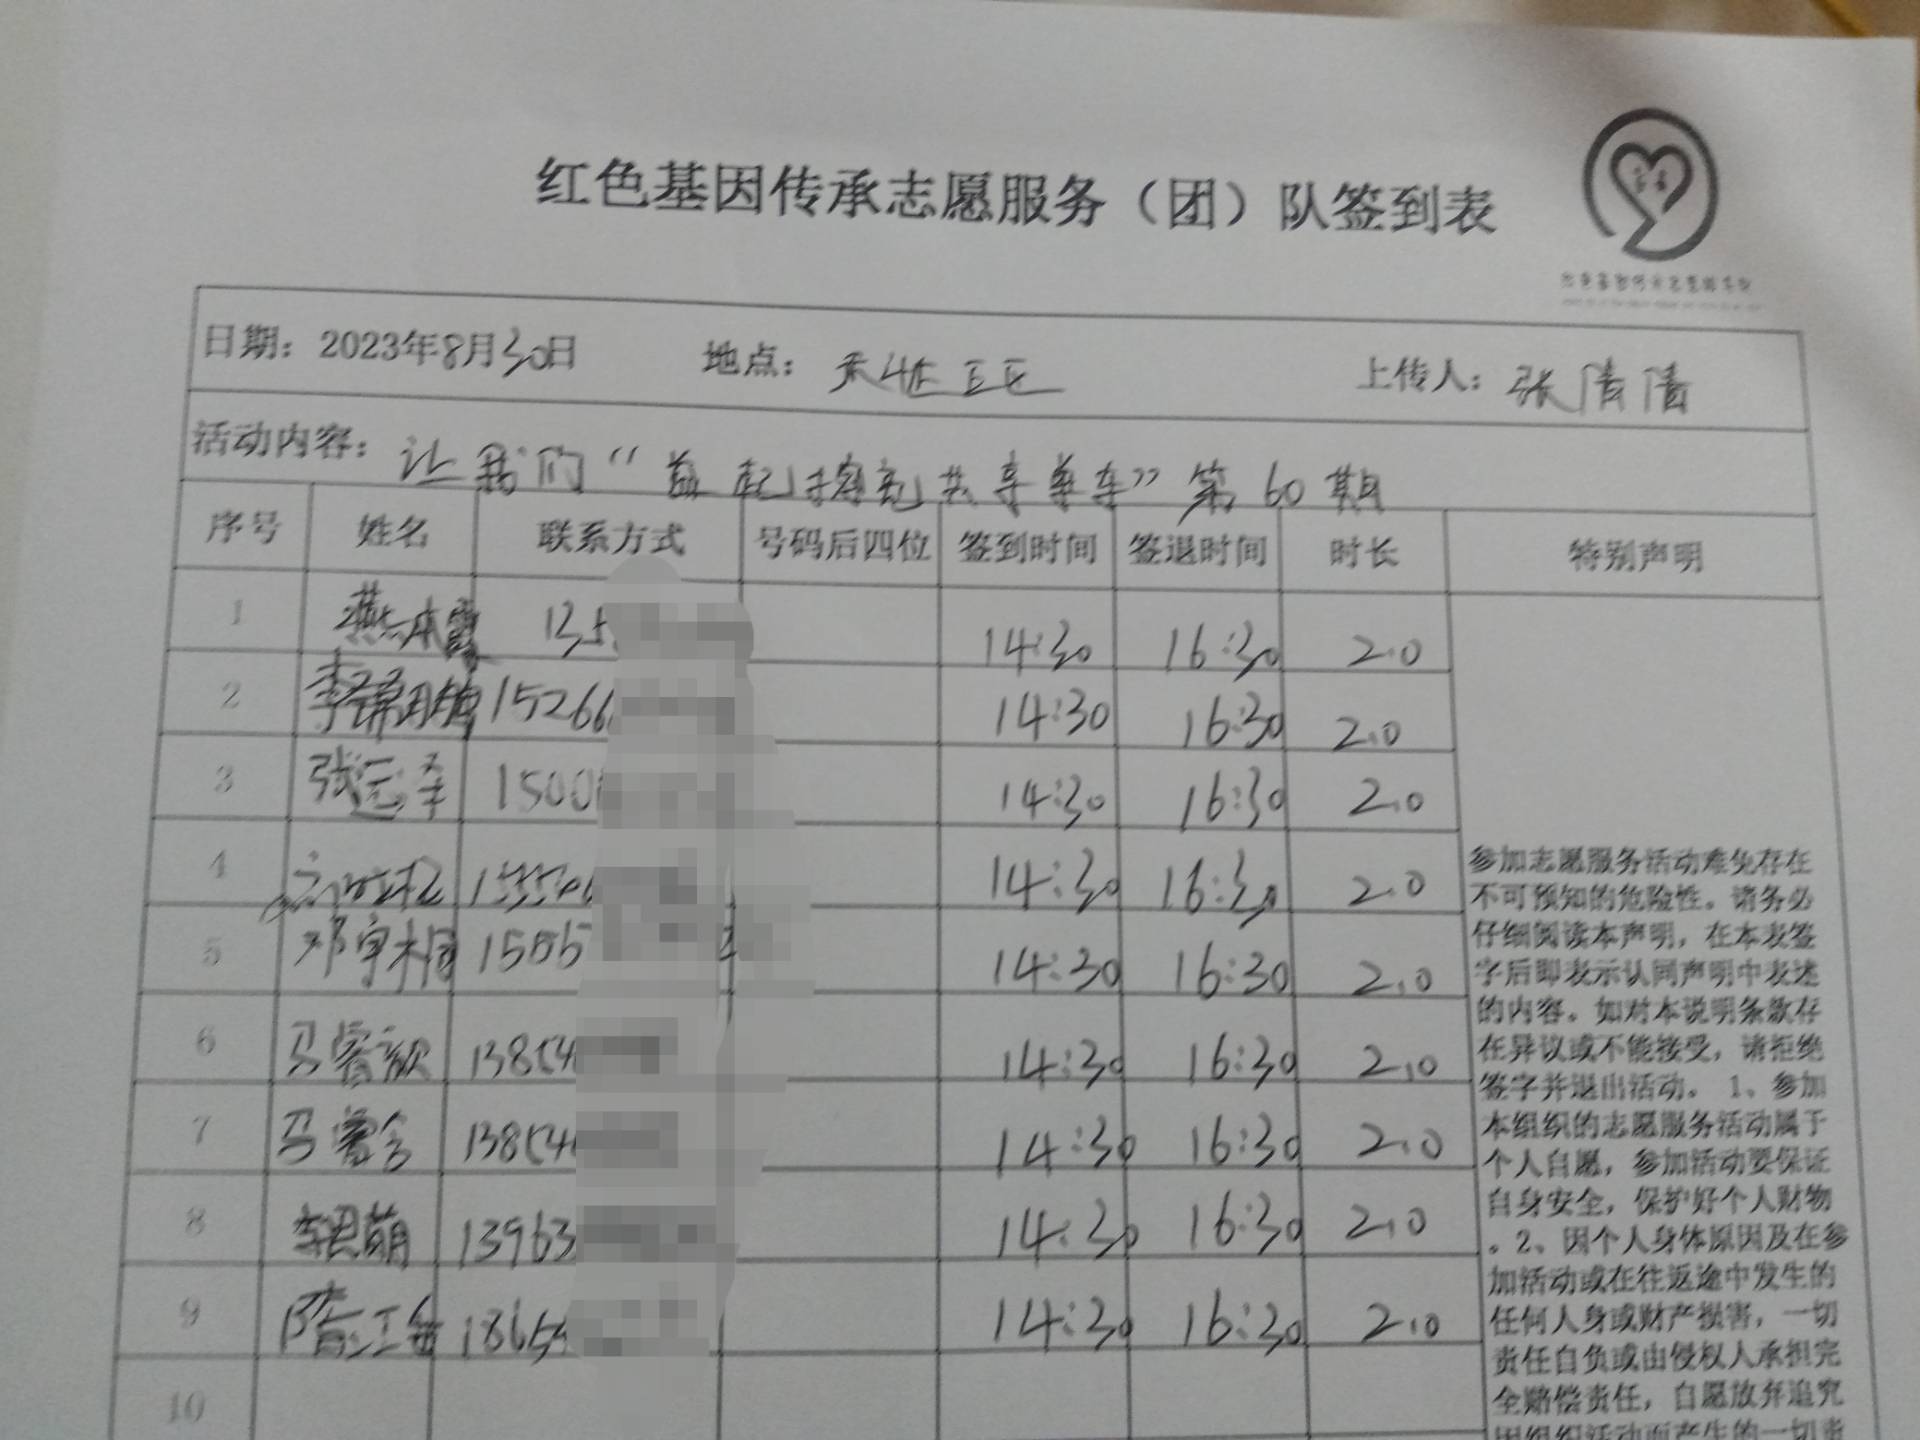 红色基因传承志愿服务（团）队签到表
日期：2023年8月30日 地点：天桥区 上传人：张倩倩
活动内容：让我们“益起擦亮共享单车”第60期
序号 姓名 联系方式 号码后四位 签到时间 签退时间 时长 特别声明
1 燕本霞 135 14:30 16:30 2.0
2 李锦 15266 14:30 16:30 2.0
3 张远泽 1500 14:30 16:30 2.0
4 14:30 16:30 2.0
5 邓宇桐 1586 14:30 16:30 2.0
6 马睿歆 13854 14:30 16:30 2.0
7 马睿含 13854 14:30 16:30 2.0
8 李思萌 13963 14:30 16:30 2.0
9 隋江 1865 14:30 16:30 2.0
10
参加志愿服务活动难免存在
不可预知的危险性。请务必
仔细阅读本声明，在本表签
字后即表示认同声明中表述
的内容。如对本说明条款存
在异议或不能接受，请拒绝
签字并退出活动。1、参加
本组织的志愿服务活动属于
个人自愿，参加活动要保证
自身安全，保护好个人财物
。2、因个人身体原因及在参
加活动或在往返途中发生的
任何人身或财产损害，一切
责任自负或由侵权人承担完
全赔偿责任，自愿放弃追究
因组织活动而产生的一切责